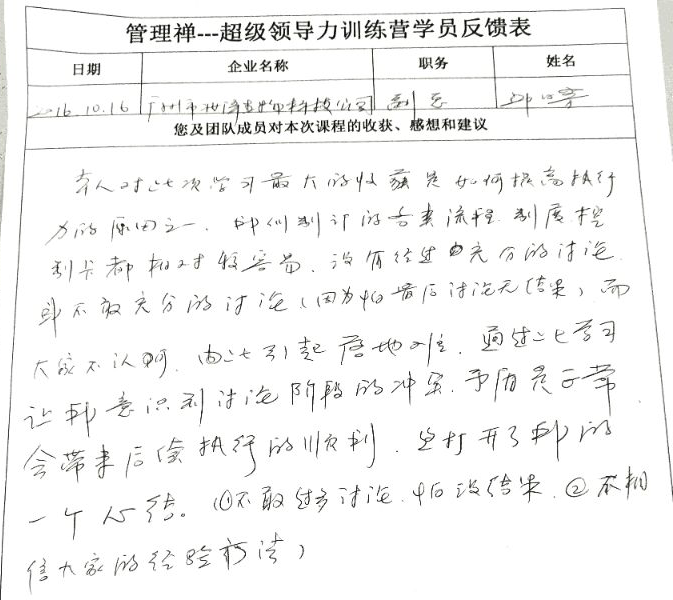 管理禅---超级领导力训练营学员反馈表
日期 企业名称 职务 姓名
2016.10.16 广州市 科技公司 副总
您及团队成员对本次课程的收获、感想和建议
本人对此次学习最大的收获是如何提高执行
力的原因之一，我们制订的各类流程，制度控
制卡都相对较容易，没有经过充分的讨论，
即不敢充分的讨论（因为怕最后讨论无结果）而
大家不认可，由此引起落地难，通过此学习
让我意识到讨论阶段的冲突、矛盾是正常
会带来后续执行的顺利，也打开了我的
一个心结。（①不敢过多讨论，怕没结果，②不相
信大家的经验方法）